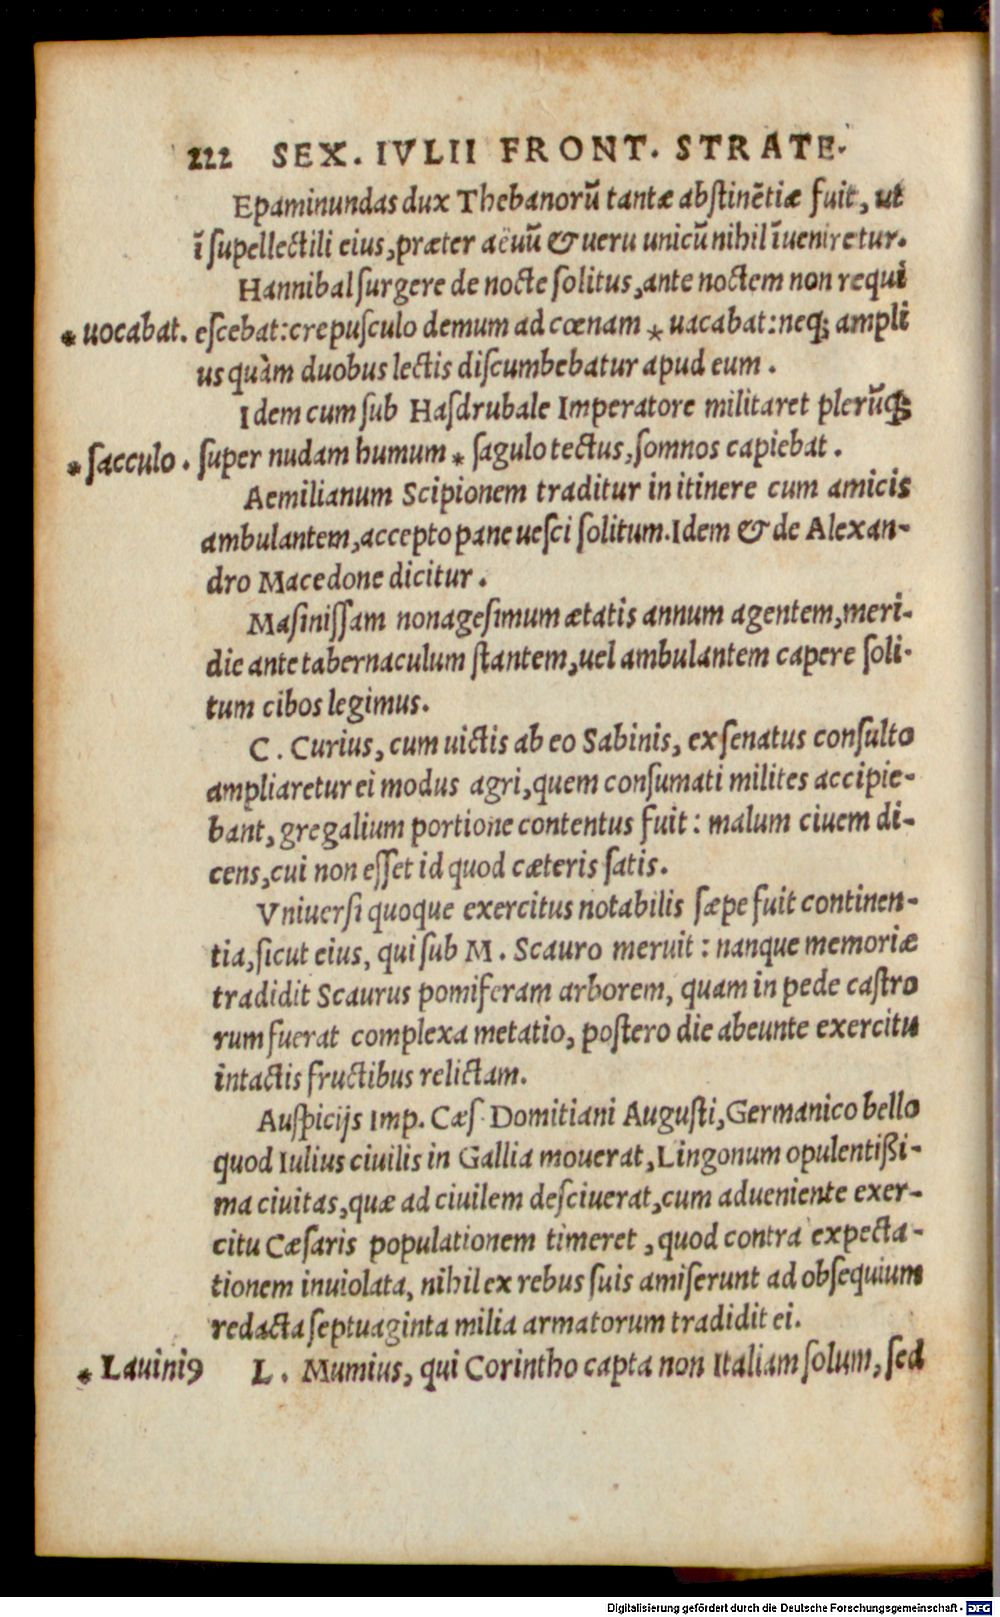 222 SEX. IVLII FRONT. STRATE.
Epaminundas dux Thebanorū tantæ abstinētiæ fuit, ut
ī supellectili eius, præter aēuū & ueru unicū nihil īueniretur.
Hannibal surgere de nocte solitus, ante noctem non requi
* uocabat. escebat: crepusculo demum ad cœnam * uacabat: neq; ampli
us quàm duobus lectis discumbebatur apud eum.
Idem cum sub Hasdrubale Imperatore militaret plerūq;
* sacculo. super nudam humum * sagulo tectus, somnos capiebat.
Aemilianum Scipionem traditur in itinere cum amicis
ambulantem, accepto pane uesci solitum. Idem & de Alexan-
dro Macedone dicitur.
Masinissam nonagesimum ætatis annum agentem, meri-
die ante tabernaculum stantem, uel ambulantem capere soli-
tum cibos legimus.
C. Curius, cum uictis ab eo Sabinis, ex senatus consulto
ampliaretur ei modus agri, quem consumati milites accipie-
bant, gregalium portione contentus fuit: malum ciuem di-
cens, cui non esset id quod cæteris satis.
Vniuersi quoque exercitus notabilis sæpe fuit continen-
tia, sicut eius, qui sub M. Scauro meruit: nanque memoriæ
tradidit Scaurus pomiferam arborem, quam in pede castro
rum fuerat complexa metatio, postero die abeunte exercitu
intactis fructibus relictam.
Auspicijs Imp. Cæs. Domitiani Augusti, Germanico bello
quod Iulius ciuilis in Gallia mouerat, Lingonum opulentißi-
ma ciuitas, quæ ad ciuilem desciuerat, cum adueniente exer-
citu Cæsaris populationem timeret, quod contra expecta-
tionem inuiolata, nihil ex rebus suis amiserunt ad obsequium
redacta septuaginta milia armatorum tradidit ei.
* Lauini9 L. Mumius, qui Corintho capta non Italiam solum, sed
Digitalisierung gefördert durch die Deutsche Forschungsgemeinschaft - DFG